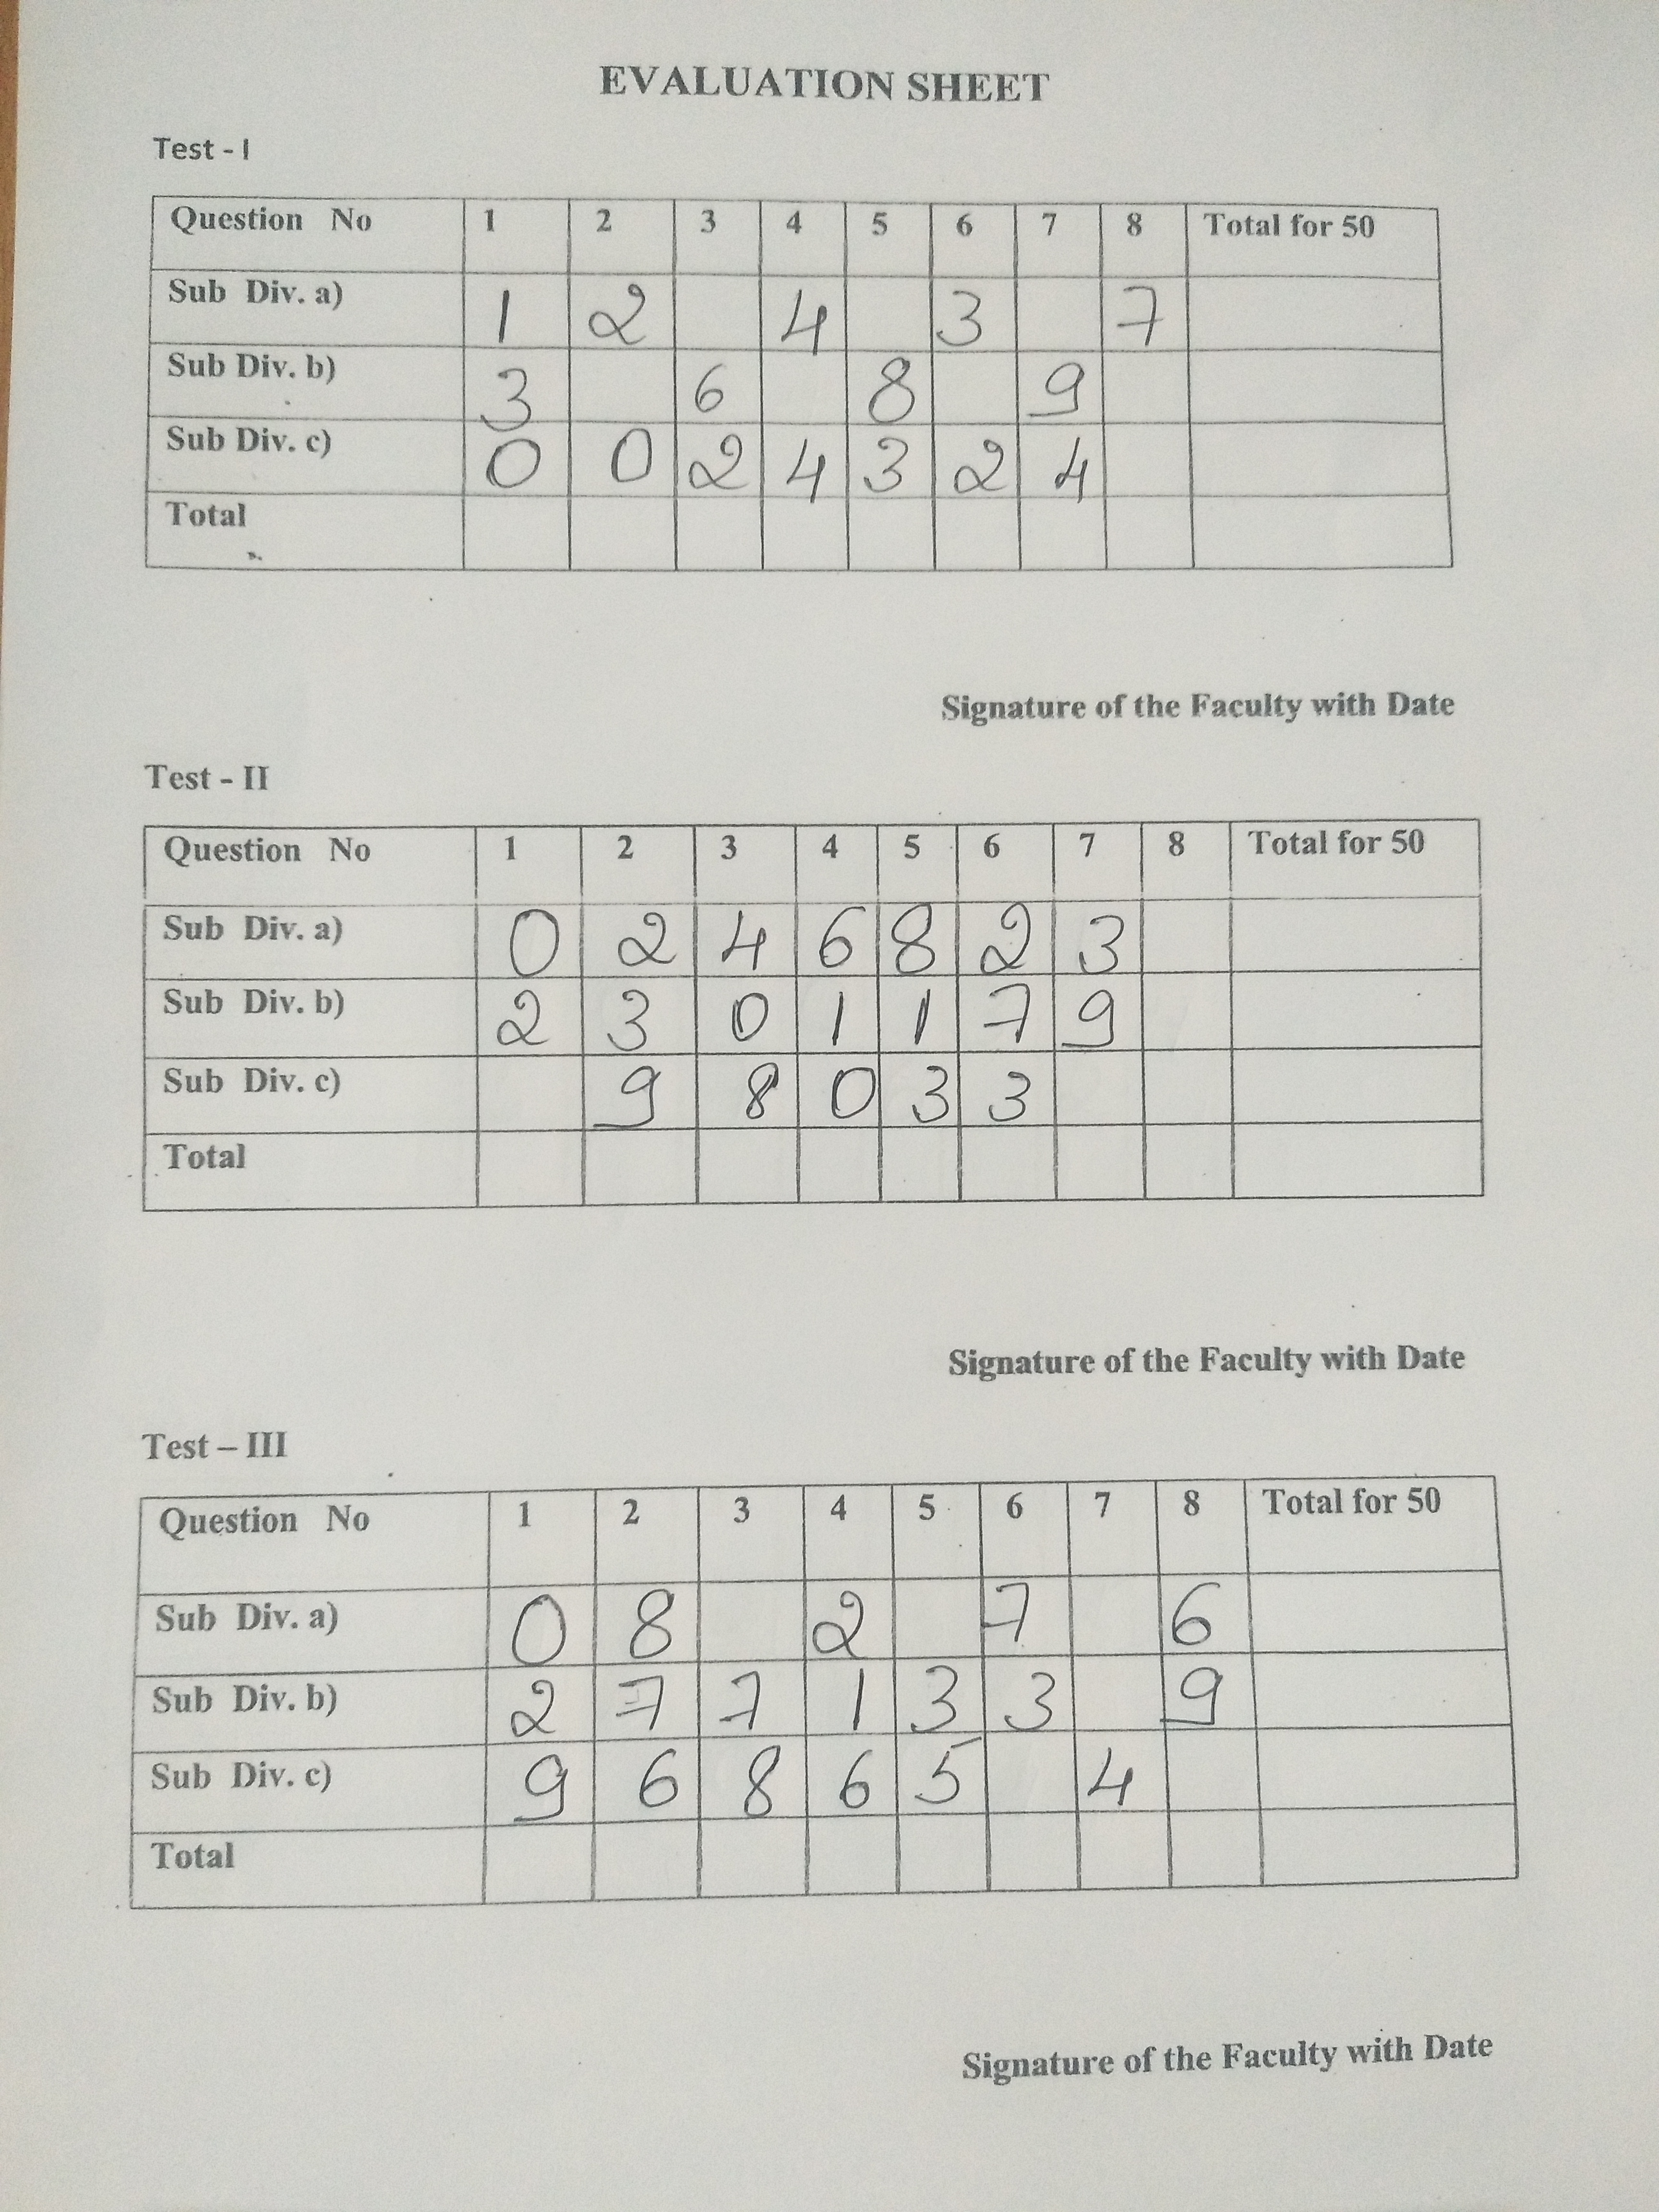 EVALUATION SHEET
Test - I
Question No 1 2 3 4 5 6 7 8 Total for 50
Sub Div. a) 1 2 4 3 7
Sub Div. b) 3 6 8 9
Sub Div. c) 0 0 2 4 3 2 4
Total
Signature of the Faculty with Date
Test - II
Question No 1 2 3 4 5 6 7 8 Total for 50
Sub Div. a) 0 2 4 6 8 2 3
Sub Div. b) 2 3 0 1 1 7 9
Sub Div. c) 9 8 0 3 3
Total
Signature of the Faculty with Date
Test – III
Question No 1 2 3 4 5 6 7 8 Total for 50
Sub Div. a) 0 8 2 7 6
Sub Div. b) 2 7 7 1 3 3 9
Sub Div. c) 9 6 8 6 5 4
Total
Signature of the Faculty with Date